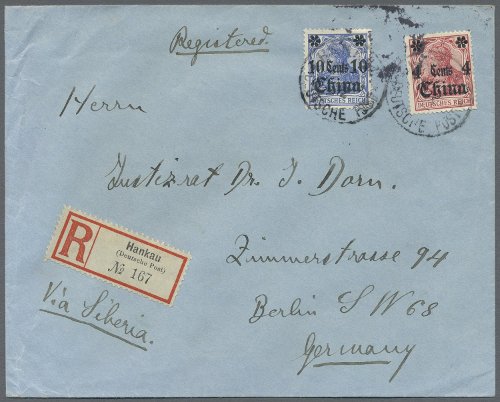 Registered.
10 Cents 10
China
DEUTSCHES REICH
4 Cents 4
China
DEUTSCHES REICH
DEUTSCHE POST
DEUTSCHE POST
Herrn
Justizrat Dr. J. Dorn.
R
Hankau
(Deutsche Post)
№ 167
Zimmerstrasse 94
Via Siberia.
Berlin S W 68
Germany